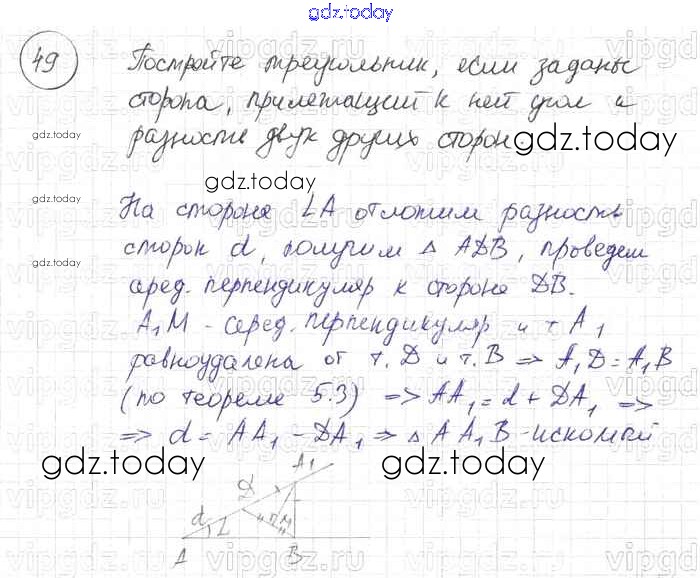 gdz.today
49
Постройте треугольник, если заданы
сторона, прилежащий к ней угол и
gdz.today
разность двух других сторон.
gdz.today
gdz.today
gdz.today
На стороне ∠A отложим разность
сторон d, получим △ ADB, проведем
gdz.today
сред. перпендикуляр к стороне DB.
A₁M - серед. перпендикуляр и т A₁
равноудалена от т. D и т. B => A₁D = A₁B
(по теореме 5.3) => AA₁ = d + DA₁ =>
=> d = AA₁ - DA₁ => △ AA₁B - искомый
gdz.today
gdz.today
A₁
D
d
L
M
A
B